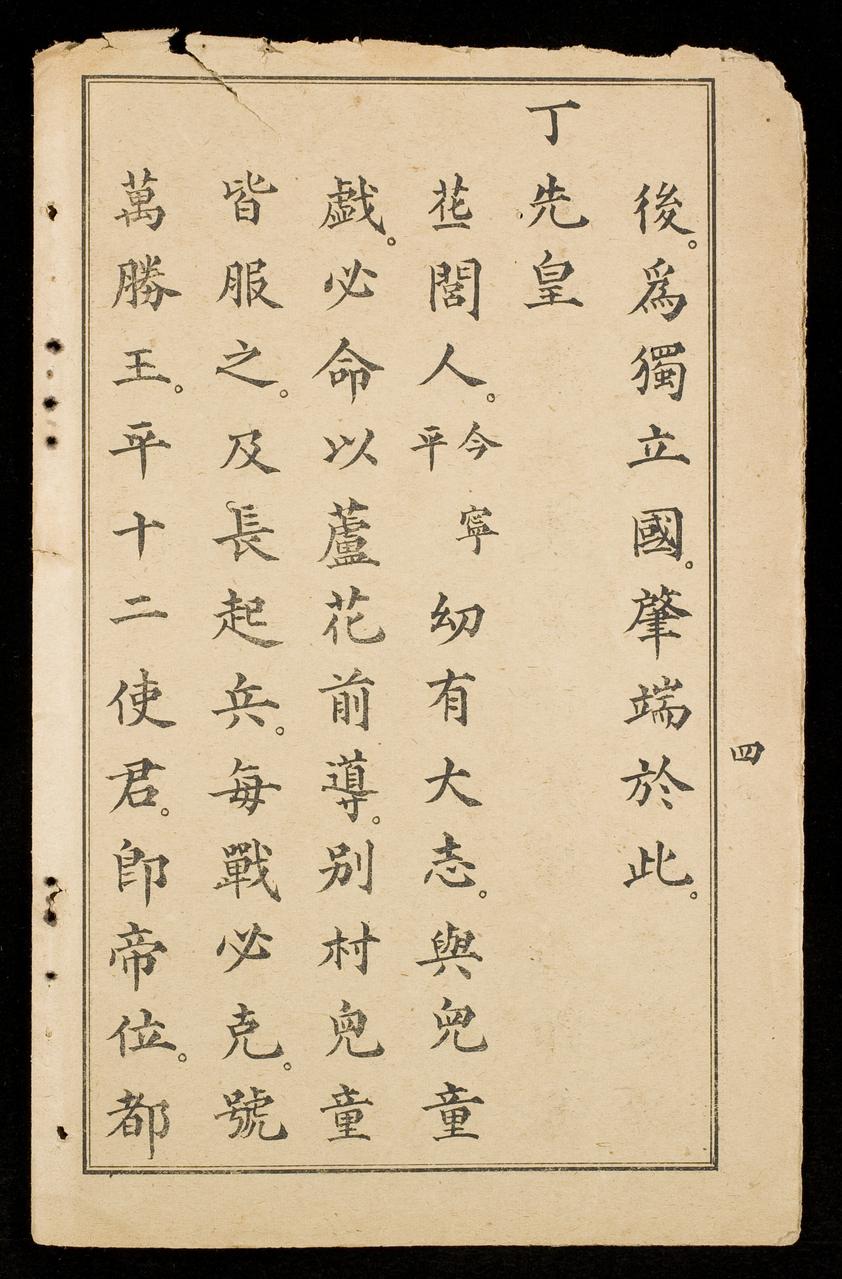 四
後。爲獨立國。肇端於此。
丁先皇
花閭人。今寧平㓜有大志。與兒童
戯。必命以蘆花前導。别村兒童
皆服之。及長起兵。每戰必克。號
萬勝王。平十二使君。卽帝位。都